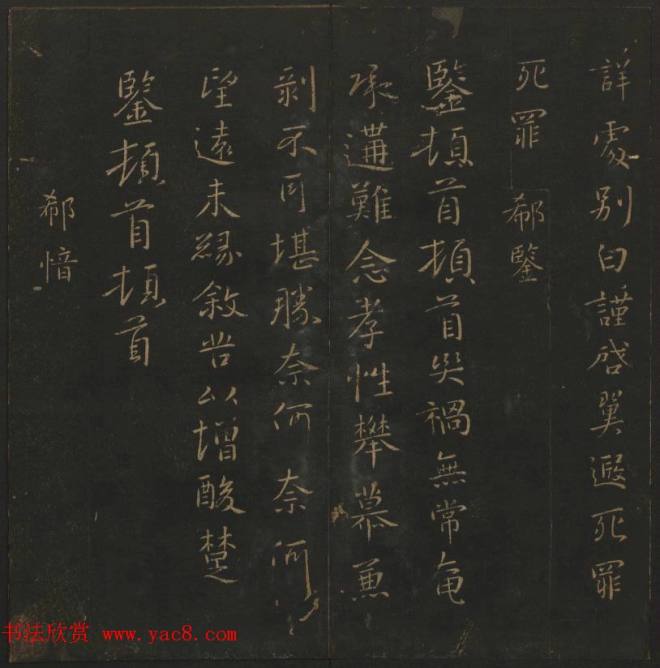 詳處別白謹啓翼遐死罪
死罪 郗鑒
鑒頓首頓首災禍無常奄
承遘難念孝性攀慕兼
剝不可堪勝奈何奈何
望遠未緣敘苦以增酸楚
鑒頓首頓首
郗愔
书法欣赏 www.yac8.com